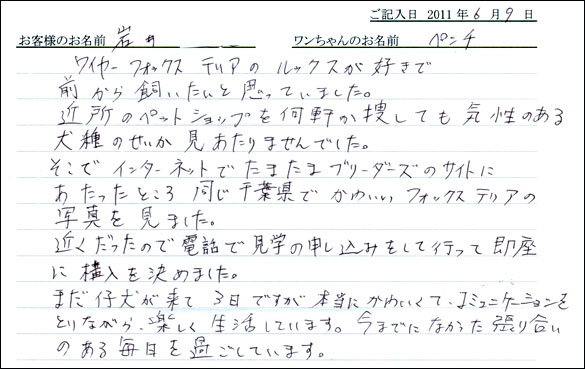 ご記入日 2011年6月9日
お客様のお名前 岩井 ワンちゃんのお名前 ペンチ
ワイヤーフォックステリアのルックスが好きで
前から飼いたいと思っていました。
近所のペットショップを何軒か捜しても気性のある
犬種のせいか見あたりませんでした。
そこでインターネットでたまたまブリーダーズのサイトに
あたったところ同じ千葉県でかわいいフォックステリアの
写真を見ました。
近くだったので電話で見学の申し込みをして行って即座
に構入を決めました。
まだ仔犬が来て3日ですが本当にかわいくて、コミュニケーションを
とりながら、楽しく生活しています。今までになかった張り合い
のある毎日を過ごしています。